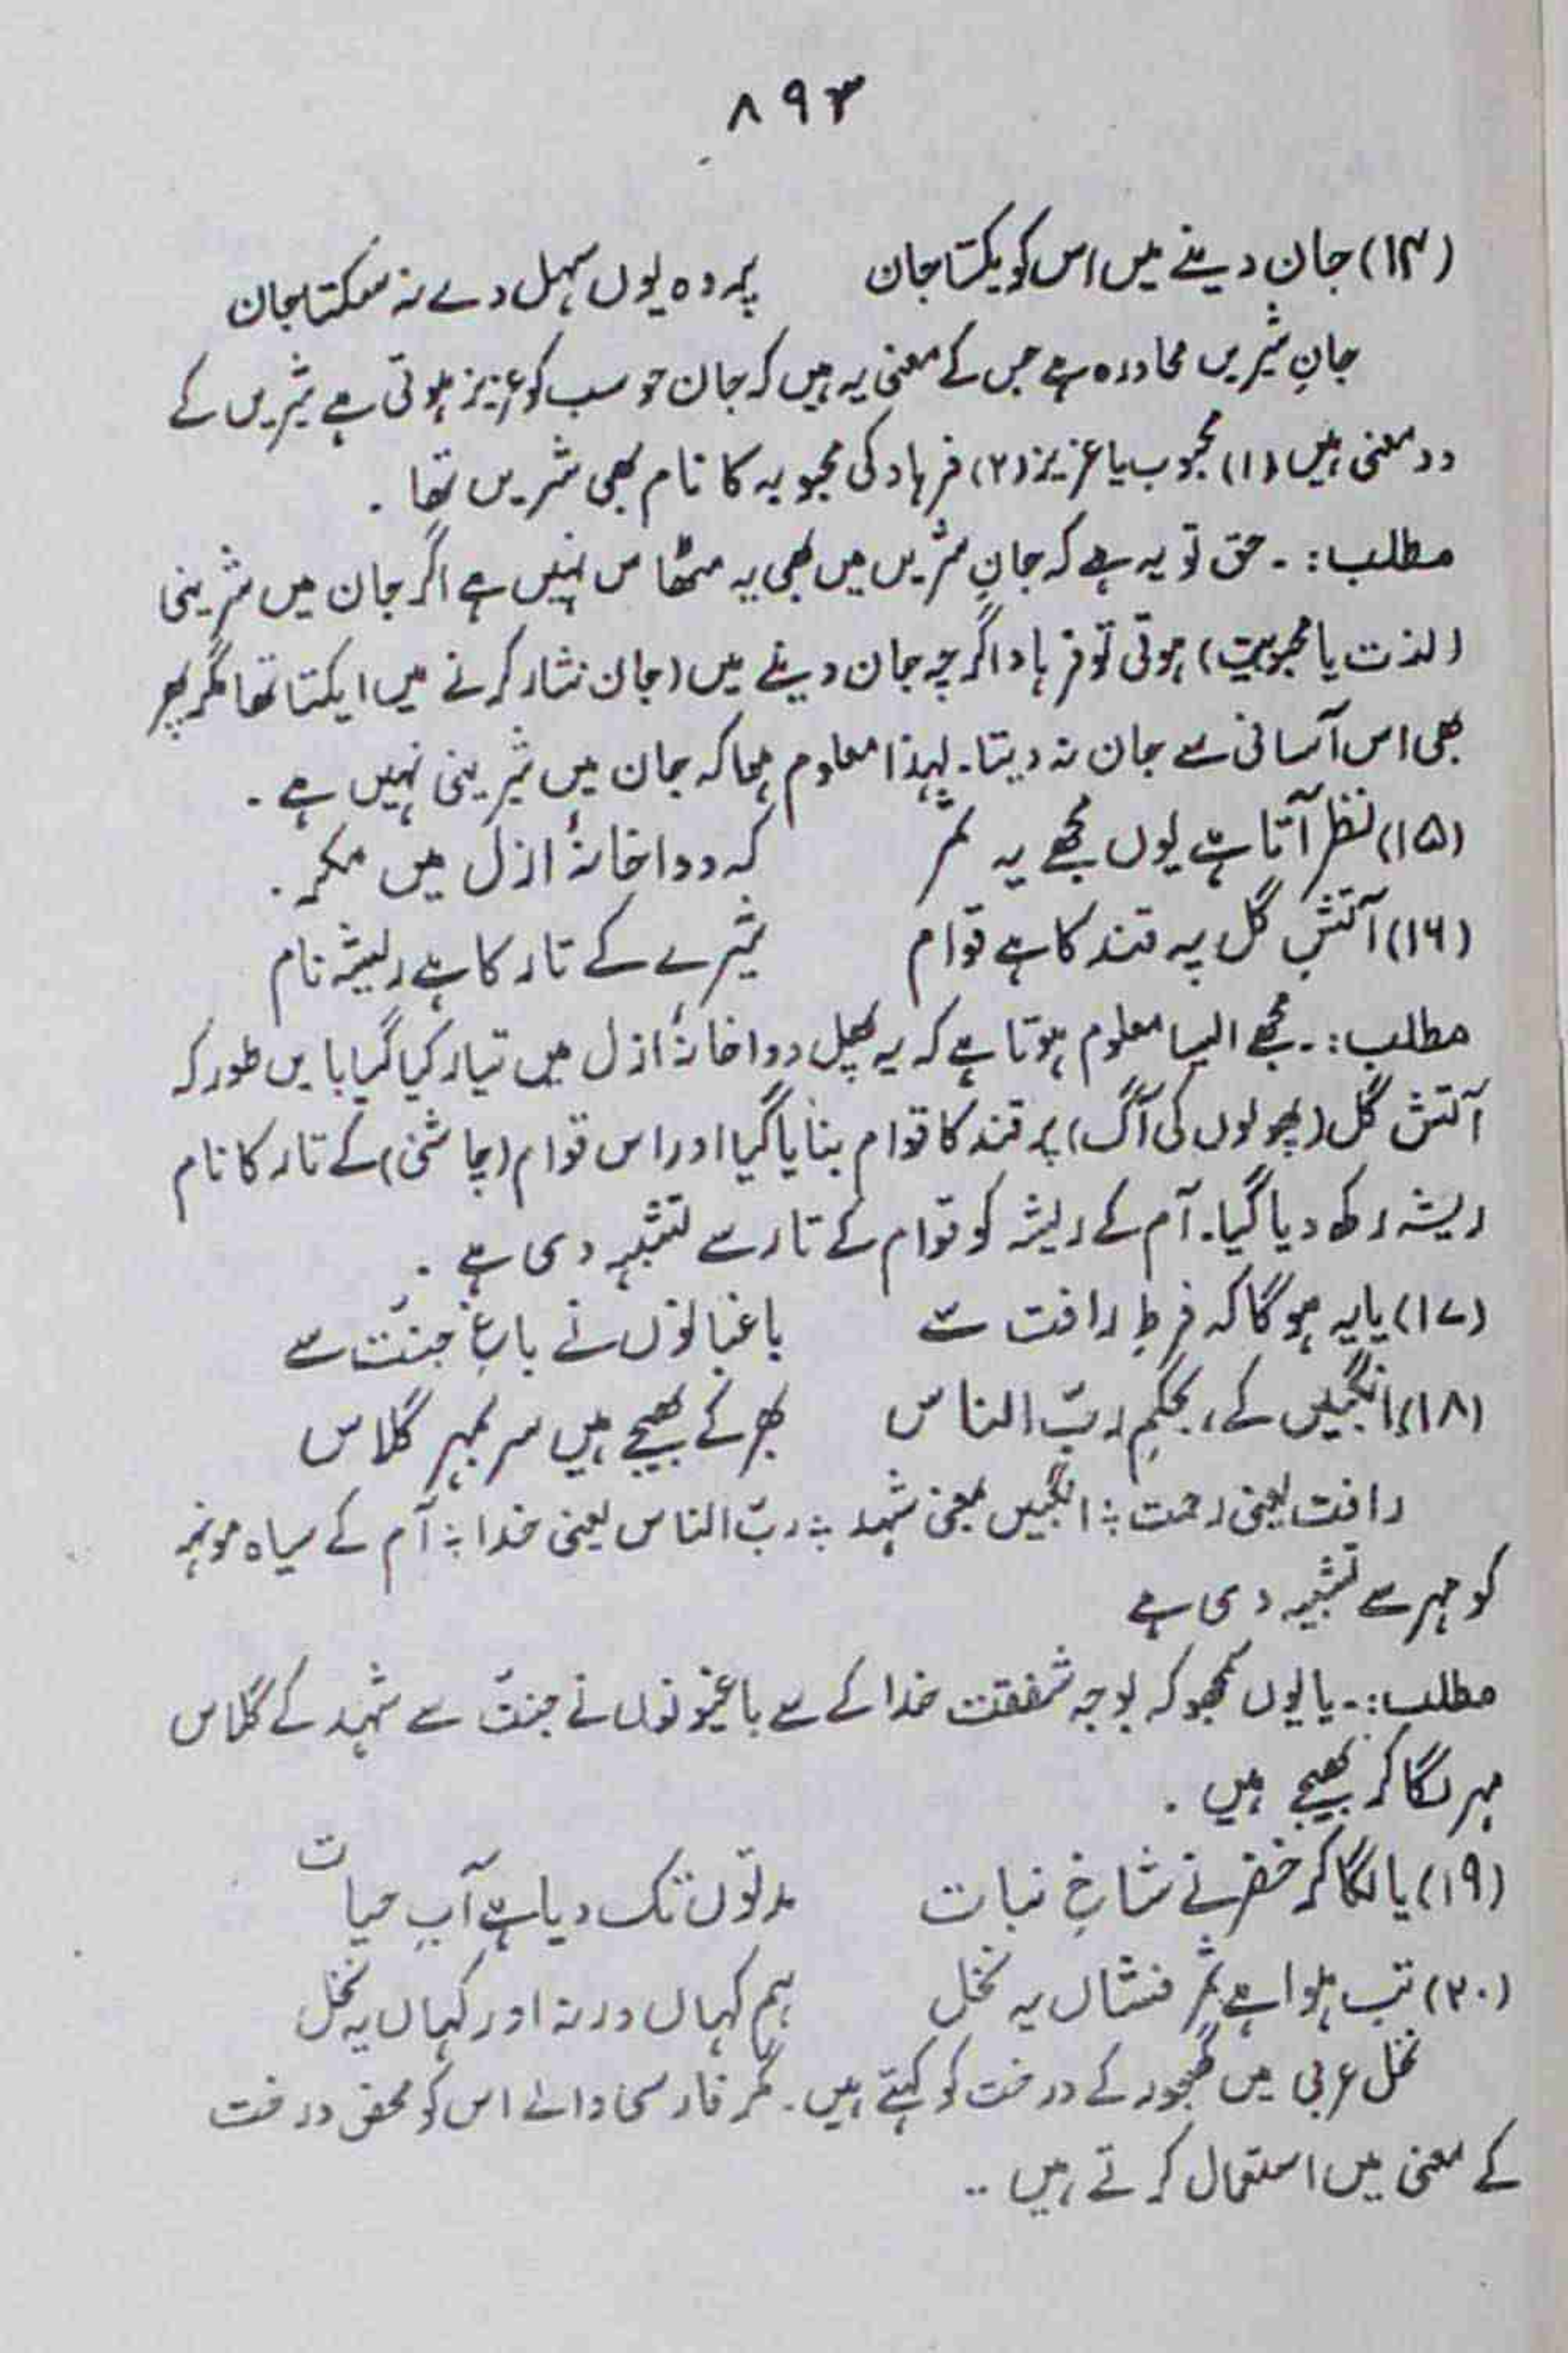 ۸۹۳
(۱۴) جان دینے میں اس کو یکتا جان پر وہ یوں سہل دے نہ سکتا جان
جانِ شیریں محاورہ ہے جس کے معنی یہ ہیں کہ جان جو سب کو عزیز ہوتی ہے شیریں کے
دو معنی ہیں (۱) محبوب یا عزیز (۲) فرہاد کی محبوبہ کا نام بھی شریں تھا ۔
مطلب :۔ حق تو یہ ہے کہ جانِ شریں میں بھی یہ مٹھاس نہیں ہے اگر جان میں شرینی
(لذت یا محبوبیت) ہوتی تو فرہاد اگرچہ جان دینے میں (جان نثار کرنے میں ایکتا تھا مگر پھر
بھی اس آسانی سے جان نہ دیتا۔ لہٰذا معلوم ہوا کہ جان میں شیرینی نہیں ہے ۔
(۱۵) نظر آتا ہے یوں مجھے یہ ثمر کہ دواخانۂ ازل میں مگر ۔
(۱۶) آتشِ گل پہ قند کا ہے قوام شیرے کے تار کا ہے ریشہ نام
مطلب :۔ مجھے ایسا معلوم ہوتا ہے کہ یہ پھل دواخانۂ ازل میں تیار کیا گیا بایں طور کہ
آتش گل (پھولوں کی آگ) پر قند کا قوام بنایا گیا اور اس قوام (چاشنی) کے تار کا نام
ریشہ رکھ دیا گیا۔ آم کے ریشہ کو قوام کے تار سے تشبیہ دی ہے ۔
(۱۷) یا یہ ہوگا کہ فرطِ رافت سے باغبانوں نے باغِ جنّت سے
(۱۸) انگبیں کے، بحکمِ ربّ الناس بھر کے بھیجے ہیں سر بمہر گلاس
رافت یعنی رحمت ؛ انگبیں بمعنی شہد ؛ ربّ الناس یعنی خدا ؛ آم کے سیاہ مونہہ
کو مہر سے تشبیہ دی ہے
مطلب :۔ یا یوں سمجھو کہ بوجہ شفقت خدا کے سے باغبونوں نے جنت سے شہد کے گلاس
مہر لگا کر بھیجے ہیں ۔
(۱۹) یا لگا کر خضر نے شاخِ نبات مدتوں تک دیا ہے آبِ حیات
(۲۰) تب ہوا ہے ثمر فشاں یہ نخل ہم کہاں ورنہ اور کہاں یہ نخل
نخل عربی میں کھجور کے درخت کو کہتے ہیں۔ مگر فارسی والے اس کو محض درخت
کے معنی میں استعمال کرتے ہیں ۔۔